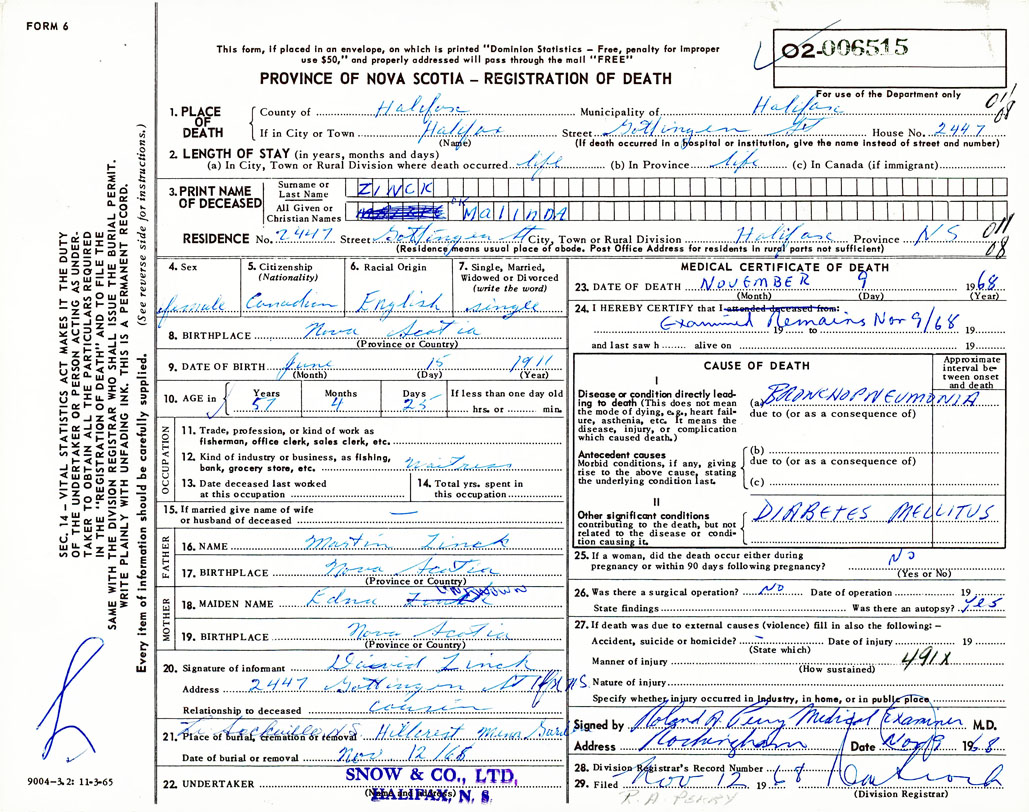 FORM 6
This form, if placed in an envelope, on which is printed "Dominion Statistics – Free, penalty for improper
use $50," and properly addressed will pass through the mail "FREE"
PROVINCE OF NOVA SCOTIA – REGISTRATION OF DEATH
02-006515
For use of the Department only
011
08
1. PLACE OF DEATH
County of Halifax Municipality of Halifax
If in City or Town Halifax Street Gottingen St House No. 2447
(Name) (If death occurred in a hospital or institution, give the name instead of street and number)
2. LENGTH OF STAY (in years, months and days)
(a) In City, Town or Rural Division where death occurred life (b) In Province life (c) In Canada (if immigrant)
3. PRINT NAME OF DECEASED
Surname or Last Name ZINCK
All Given or Christian Names OK MALINDA
RESIDENCE No. 2447 Street Gottingen St City, Town or Rural Division Halifax Province NS
011
08
(Residence means usual place of abode. Post Office Address for residents in rural parts not sufficient)
4. Sex
female
5. Citizenship (Nationality)
Canadian
6. Racial Origin
English
7. Single, Married, Widowed or Divorced (write the word)
single
8. BIRTHPLACE Nova Scotia
(Province or Country)
9. DATE OF BIRTH June 15 1911
(Month) (Day) (Year)
10. AGE in Years 57 Months 4 Days 25 If less than one day old hrs. or min.
OCCUPATION
11. Trade, profession, or kind of work as
fisherman, office clerk, sales clerk, etc.
12. Kind of industry or business, as fishing,
bank, grocery store, etc. Waitress
13. Date deceased last worked
at this occupation
14. Total yrs. spent in
this occupation
15. If married give name of wife
or husband of deceased —
FATHER
16. NAME Martin Zinck
17. BIRTHPLACE Nova Scotia
(Province or Country)
MOTHER
18. MAIDEN NAME Edna Zinck unknown
19. BIRTHPLACE Nova Scotia
(Province or Country)
20. Signature of informant David Zinck
Address 2447 Gottingen St Hfx N.S.
Relationship to deceased cousin
Sackville NS
21. Place of burial, cremation or removal Hillcrest Mem
Date of burial or removal Nov 12/68
22. UNDERTAKER SNOW & CO., LTD.
(Name and Address) HALIFAX, N. S.
MEDICAL CERTIFICATE OF DEATH
23. DATE OF DEATH NOVEMBER 9 1968
(Month) (Day) (Year)
24. I HEREBY CERTIFY that I attended deceased from:
Examined Remains Nov 9/68
19 to 19
and last saw h alive on 19
CAUSE OF DEATH
Approximate interval between onset and death
I
Disease or condition directly leading to death (This does not mean the mode of dying, e.g., heart failure, asthenia, etc. It means the disease, injury, or complication which caused death.)
(a) BRONCHOPNEUMONIA
due to (or as a consequence of)
Antecedent causes
Morbid conditions, if any, giving rise to the above cause, stating the underlying condition last.
(b)
due to (or as a consequence of)
(c)
II
Other significant conditions
contributing to the death, but not related to the disease or condition causing it.
DIABETES MELLITUS
25. If a woman, did the death occur either during
pregnancy or within 90 days following pregnancy? No
(Yes or No)
26. Was there a surgical operation? No Date of operation 19
State findings Was there an autopsy? Yes
27. If death was due to external causes (violence) fill in also the following: –
Accident, suicide or homicide? – Date of injury 19
(State which)
Manner of injury 491X
(How sustained)
Nature of injury
Specify whether injury occurred in industry, in home, or in public place
Signed by Roland A Perry Medical Examiner M.D.
Address Rockingham Date Nov 9 1968
28. Division Registrar's Record Number
29. Filed Nov 12 1968
(Division Registrar)
R. A. PERRY
SEC. 14 – VITAL STATISTICS ACT MAKES IT THE DUTY
OF THE UNDERTAKER OR PERSON ACTING AS UNDER-
TAKER TO OBTAIN ALL THE PARTICULARS REQUIRED
IN THE "REGISTRATION OF DEATH" AND TO FILE THE
SAME WITH THE DIVISION REGISTRAR WHO SHALL ISSUE THE BURIAL PERMIT.
WRITE PLAINLY WITH UNFADING INK. THIS IS A PERMANENT RECORD.
Every item of information should be carefully supplied. (See reverse side for instructions.)
9004-3.2: 11-3-65